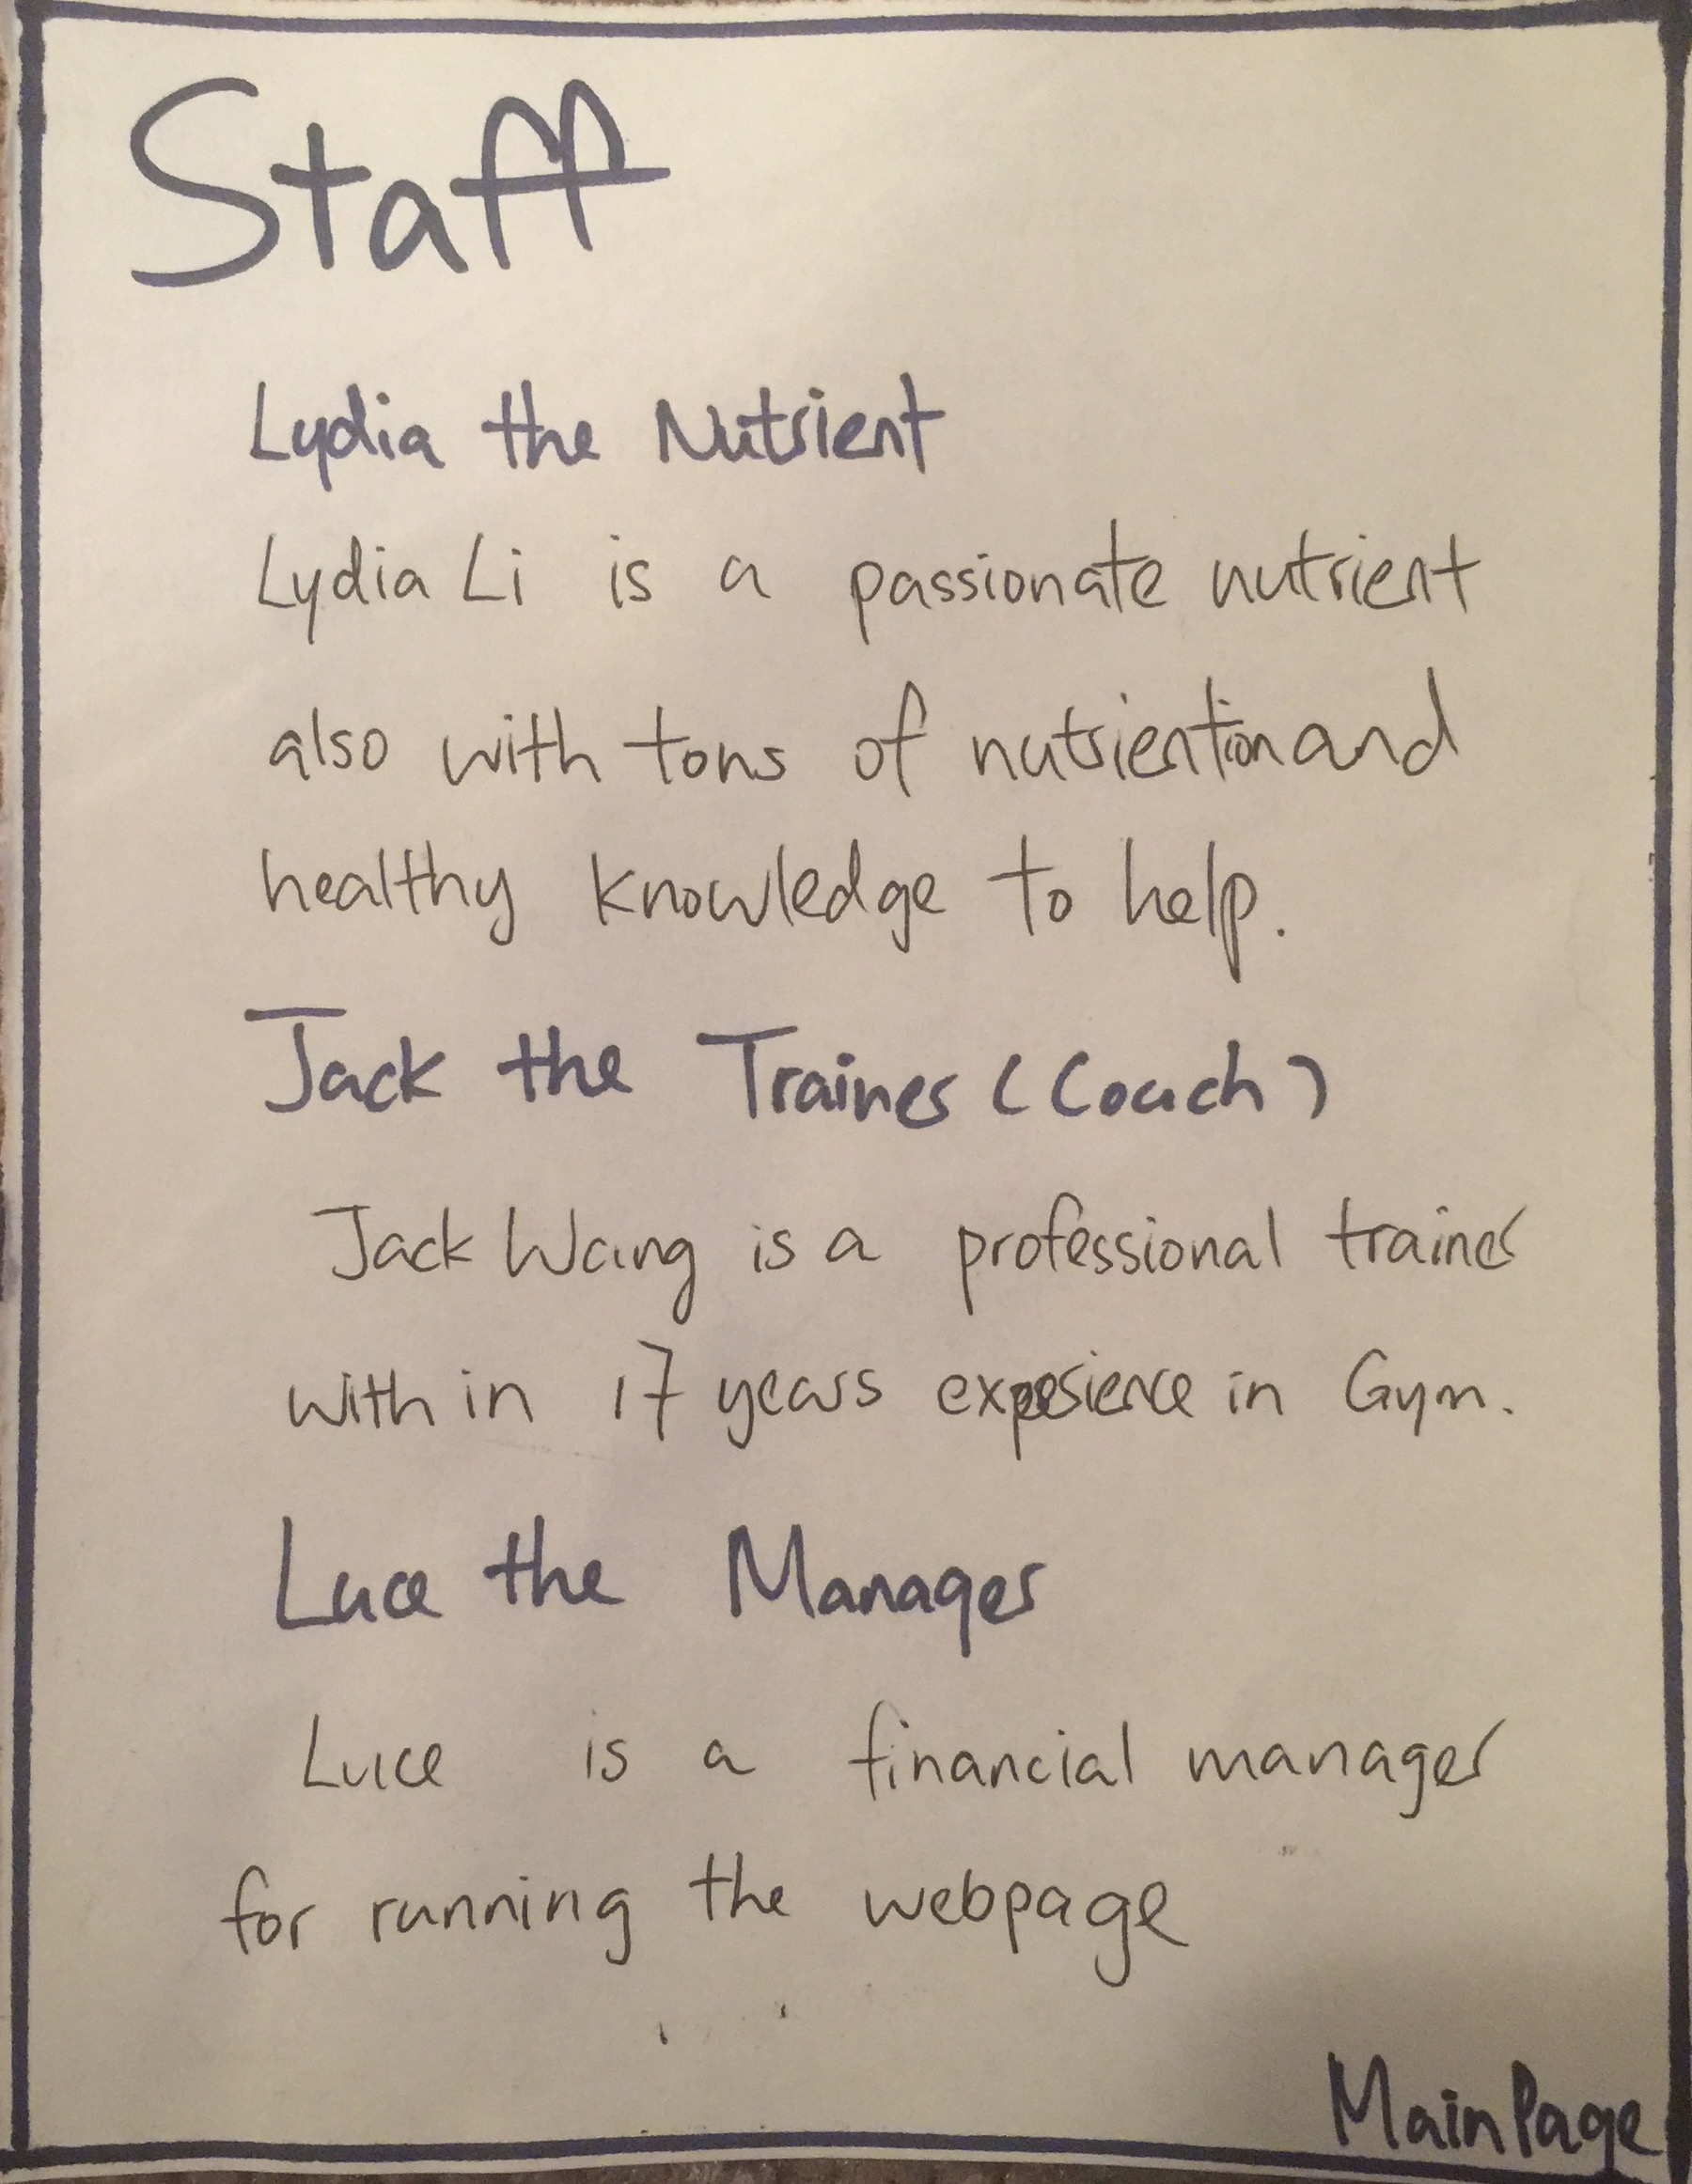 Staff
Lydia the Nutrient
Lydia Li is a passionate nutrient
also with tons of nutriention and
healthy knowledge to help.
Jack the Trainer (Coach)
Jack Wang is a professional trainer
with in 17 years experience in Gym.
Luce the Manager
Luce is a financial manager
for running the webpage
Main Page